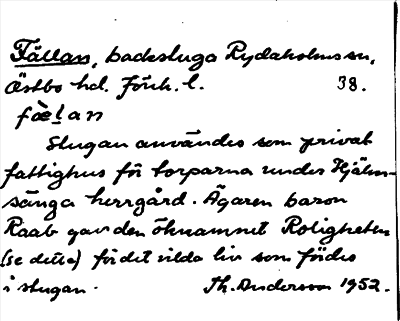 Fällan, backstuga Rydaholms sn,
Östbo hd. Jönk. l. 38.
fæ̀lan
Stugan användes som privat
fattighus för torparna under Hjälm-
sänga herrgård. Ägaren baron
Raab gav den öknamnet Roligheten
(se detta) för det vilda liv som fördes
i stugan. Th. Anderson 1952.